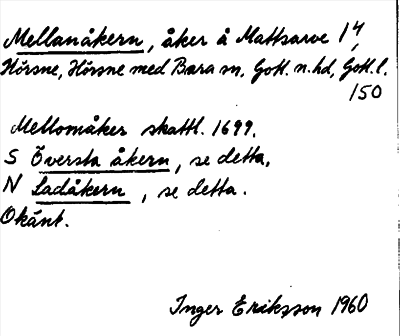 Mellanåkern, åker å Mattsarve 14,
Hörsne, Hörsne med Bara sn, Gotl. n. hd, Gotl. l.
150
Mellomåker skattl. 1699.
S Översta åkern, se detta.
N Ladåkern, se detta.
Okänt.
Inger Eriksson 1960